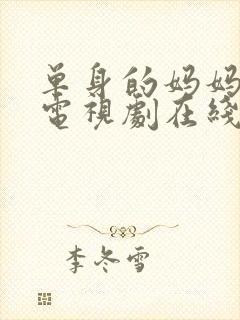 单身的妈妈
電視劇在綫
李冬雪